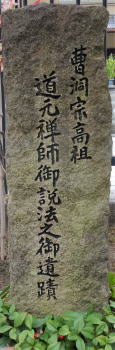 曹洞宗高祖
道元禅師御説法之御遺蹟